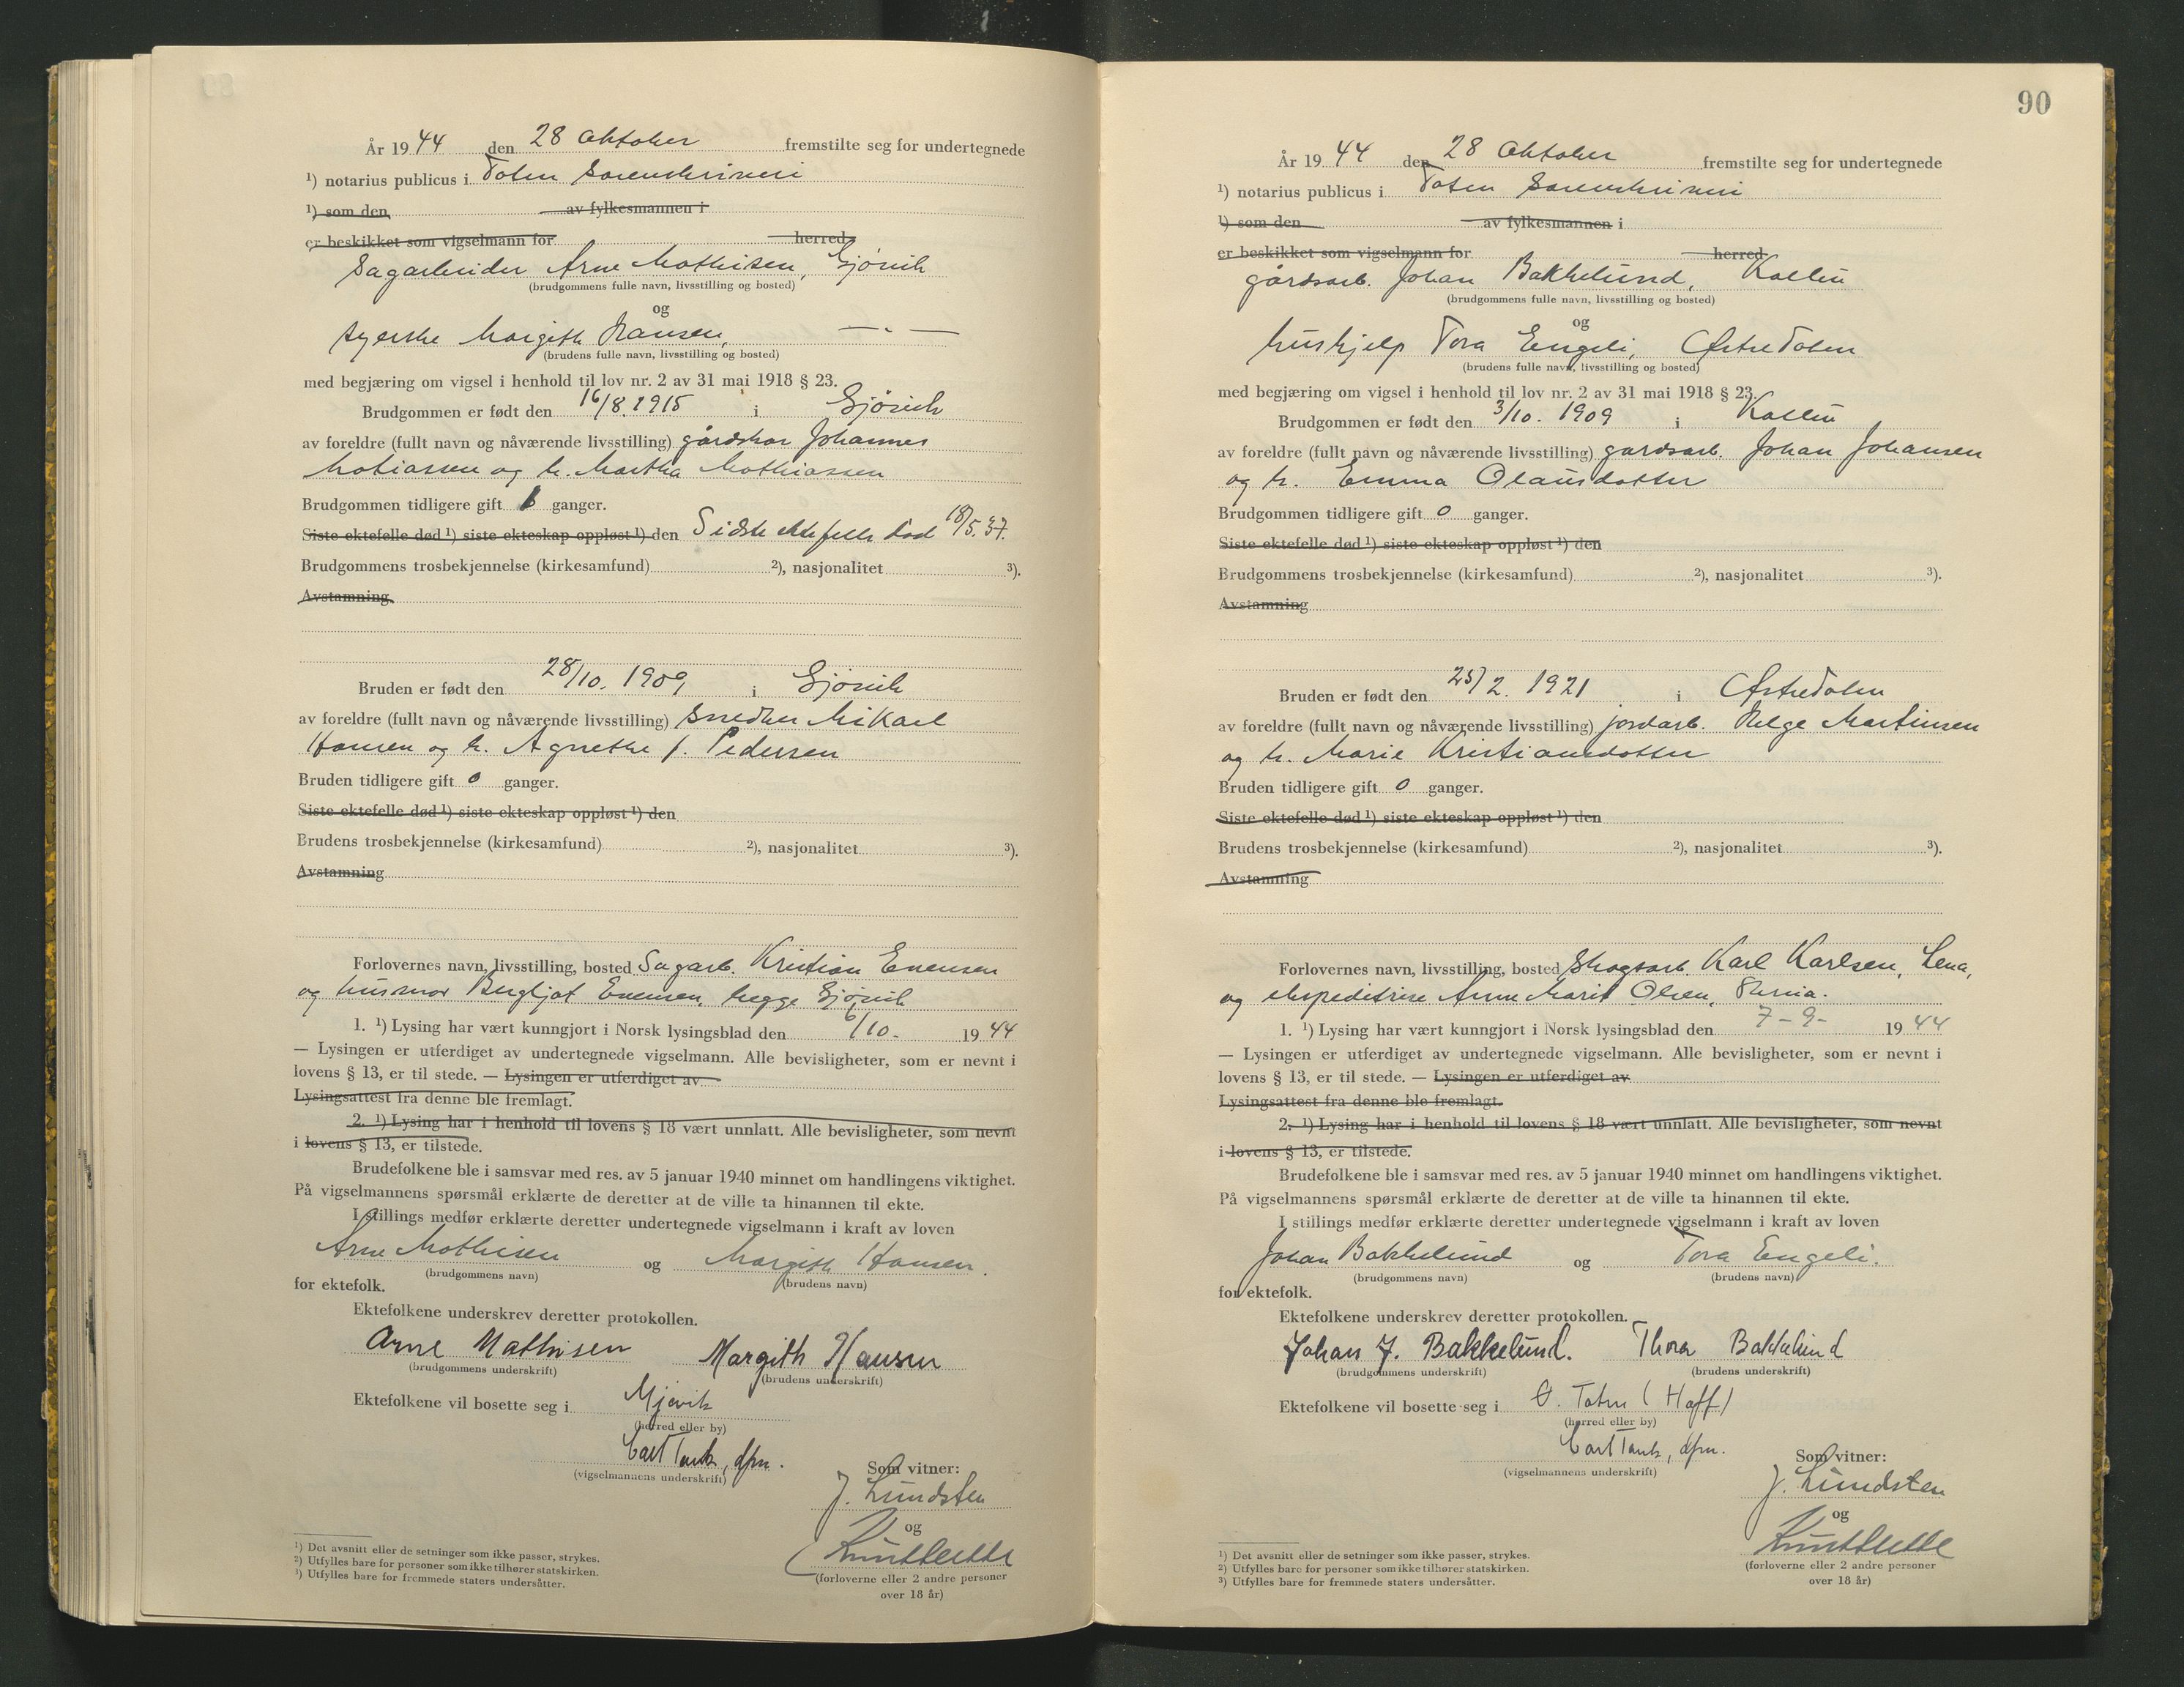 År 1944 den 28 oktober fremstilte seg for undertegnede
¹) notarius publicus i Toten Sorenskriveri
¹) som den av fylkesmannen i
er beskikket som vigselmann for herred
Sagarbeider Arne Mathisen, Gjøvik
(brudgommens fulle navn, livsstilling og bosted)
og
syerske Margith Hansen, — " —
(brudens fulle navn, livsstilling og bosted)
med begjæring om vigsel i henhold til lov nr. 2 av 31 mai 1918 § 23.
Brudgommen er født den 16/8.1915 i Gjøvik
av foreldre (fullt navn og nåværende livsstilling) gårdskar Johannes
Matiassen og h. Martha Mathiassen
Brudgommen tidligere gift 1 ganger.
Siste ektefelle død ¹) siste ekteskap oppløst ¹) den Sidste ektefelle død 18/5.37.
Brudgommens trosbekjennelse (kirkesamfund) ²), nasjonalitet ³).
Avstamning
Bruden er født den 28/10. 1909 i Gjøvik
av foreldre (fullt navn og nåværende livsstilling) snedker Mikael
Hansen og h. Agnethe f. Pedersen
Bruden tidligere gift 0 ganger.
Siste ektefelle død ¹) siste ekteskap oppløst ¹) den
Brudens trosbekjennelse (kirkesamfund) ²), nasjonalitet ³).
Avstamning
Forlovernes navn, livsstilling, bosted Sagarb. Kristian Evensen
og husmor Bergljot Evensen, begge Gjøvik
1. ¹) Lysing har vært kunngjort i Norsk lysingsblad den 6/10- 1944
— Lysingen er utferdiget av undertegnede vigselmann. Alle bevisligheter, som er nevnt i
lovens § 13, er til stede. — Lysingen er utferdiget av
Lysingsattest fra denne ble fremlagt.
2. ¹) Lysing har i henhold til lovens § 18 vært unnlatt. Alle bevisligheter, som nevnt
i lovens § 13, er tilstede.
Brudefolkene ble i samsvar med res. av 5 januar 1940 minnet om handlingens viktighet.
På vigselmannens spørsmål erklærte de deretter at de ville ta hinannen til ekte.
I stillings medfør erklærte deretter undertegnede vigselmann i kraft av loven
Arne Mathisen og Margith Hansen.
(brudgommens navn) (brudens navn)
for ektefolk.
Ektefolkene underskrev deretter protokollen.
Arne Mathisen Margith Hansen
(brudgommens underskrift) (brudens underskrift)
Ektefolkene vil bosette seg i Gjøvik
(herred eller by)
Carl Tank, dfm.
(vigselmannens underskrift)
Som vitner:
J. Lundsten
og
(forloverne eller 2 andre personer
over 18 år)
¹) Det avsnitt eller de setninger som ikke passer, strykes.
²) Utfylles bare for personer som ikke tilhører statskirken.
³) Utfylles bare for fremmede staters undersåtter.
90
År 1944 den 28 oktober fremstilte seg for undertegnede
¹) notarius publicus i Toten Sorenskriveri
¹) som den av fylkesmannen i
er beskikket som vigselmann for herred
gårdsarb. Johan Bakkelund, Kolbu
(brudgommens fulle navn, livsstilling og bosted)
og
hushjelp Tora Engeli, Østre Toten
(brudens fulle navn, livsstilling og bosted)
med begjæring om vigsel i henhold til lov nr. 2 av 31 mai 1918 § 23.
Brudgommen er født den 3/10. 1909 i Kolbu
av foreldre (fullt navn og nåværende livsstilling) gardsarb. Johan Johansen
og h. Emma Olausdotter
Brudgommen tidligere gift 0 ganger.
Siste ektefelle død ¹) siste ekteskap oppløst ¹) den
Brudgommens trosbekjennelse (kirkesamfund) ²), nasjonalitet ³).
Avstamning
Bruden er født den 25/2. 1921 i Østre Toten
av foreldre (fullt navn og nåværende livsstilling) jordarb. Helge Martinsen
og h. Marie Kristiansdotter
Bruden tidligere gift 0 ganger.
Siste ektefelle død ¹) siste ekteskap oppløst ¹) den
Brudens trosbekjennelse (kirkesamfund) ²), nasjonalitet ³).
Avstamning
Forlovernes navn, livsstilling, bosted Skogsarb. Karl Karlsen, Lena,
og ekspeditrise Anne Marit Olsen,
1. ¹) Lysing har vært kunngjort i Norsk lysingsblad den 7-9- 1944
— Lysingen er utferdiget av undertegnede vigselmann. Alle bevisligheter, som er nevnt i
lovens § 13, er til stede. — Lysingen er utferdiget av
Lysingsattest fra denne ble fremlagt.
2. ¹) Lysing har i henhold til lovens § 18 vært unnlatt. Alle bevisligheter, som nevnt
i lovens § 13, er tilstede.
Brudefolkene ble i samsvar med res. av 5 januar 1940 minnet om handlingens viktighet.
På vigselmannens spørsmål erklærte de deretter at de ville ta hinannen til ekte.
I stillings medfør erklærte deretter undertegnede vigselmann i kraft av loven
Johan Bakkelund og Tora Engeli.
(brudgommens navn) (brudens navn)
for ektefolk.
Ektefolkene underskrev deretter protokollen.
Johan J. Bakkelund. Thora Bakkelund
(brudgommens underskrift) (brudens underskrift)
Ektefolkene vil bosette seg i Ø. Toten (Hoff)
(herred eller by)
Carl Tank, dfm.
(vigselmannens underskrift)
Som vitner:
J. Lundsten
og
(forloverne eller 2 andre personer
over 18 år)
¹) Det avsnitt eller de setninger som ikke passer, strykes.
²) Utfylles bare for personer som ikke tilhører statskirken.
³) Utfylles bare for fremmede staters undersåtter.